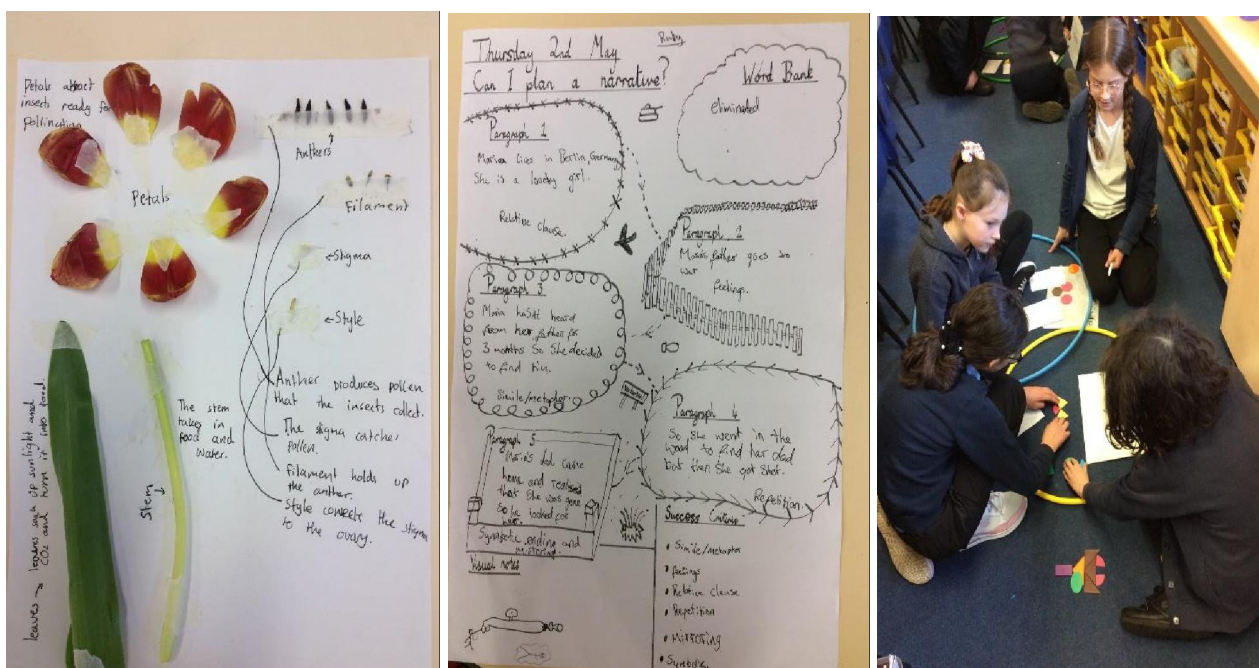 Petals attract
insects ready for
pollination
Petals
Anthers
Filament
Stigma
Style
Anther produces pollen
that the insects collect.
The stigma catches
pollen.
Filament holds up
the anther.
Style connects the stigma
to the ovary.
The stem
takes in
food and
water.
Stem
leaves → leaves soak up sunlight and
CO2 and turn it into food.
Thursday 2nd May
Ruby
Can I plan a narrative?
Word Bank
eliminated
Paragraph 1
Maria lives in Berlin, Germany
She is a lovely girl.
Relative clause
Paragraph 2
Maria's father goes to
war
feelings.
Paragraph 3
Maria hasn't heard
from her father for
3 months so she decided
to find him.
Simile/metaphor
Paragraph 4
So she went in the
wood to find her dad
but then she got shot.
Repetition
Paragraph 5
Maria's dad came
home and realised
that she was gone
so he looked for
her.
Symbolic ending and
mirroring
Visual notes
Success Criteria
• Simile/metaphor
• feelings
• Relative clause
• Repetition
• Mirroring
• Symbolic